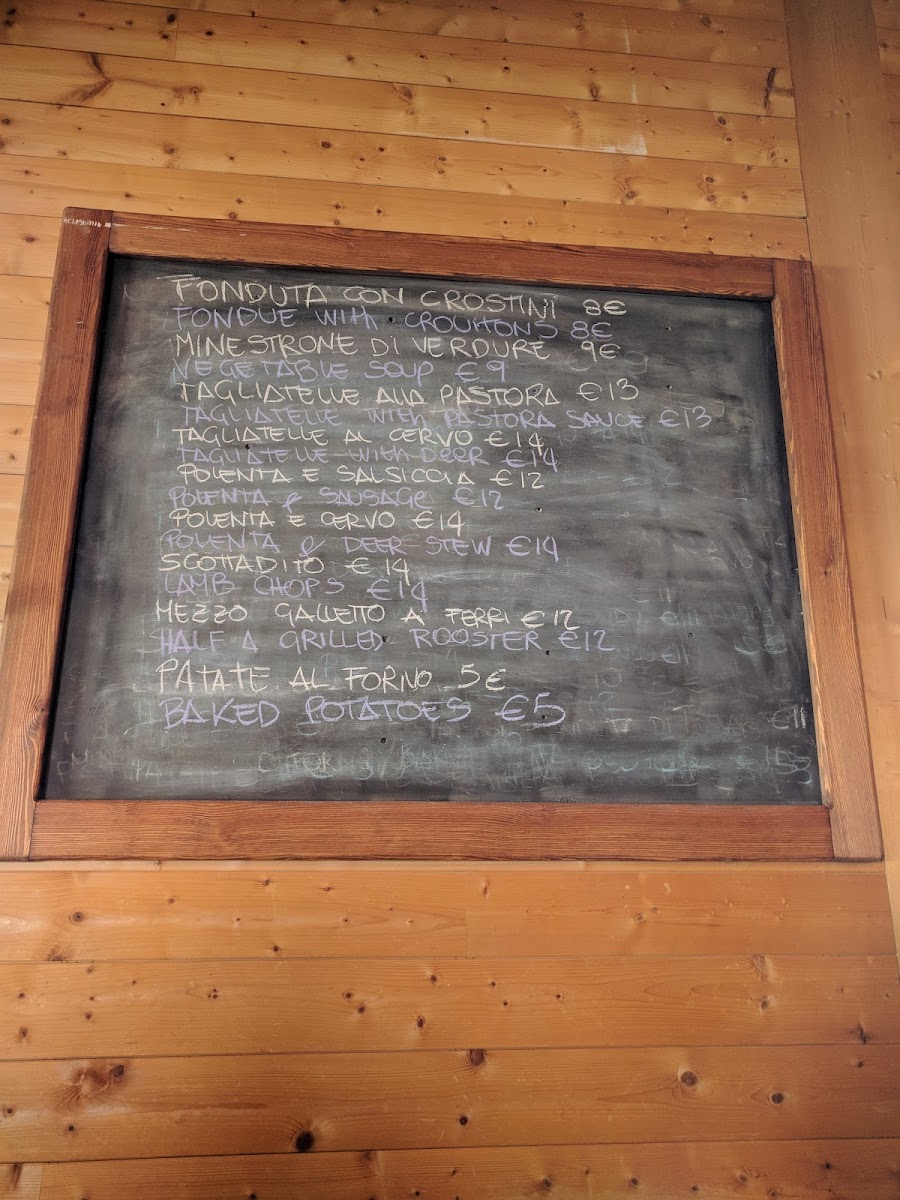 FONDUTA CON CROSTINI 8€
FONDUE WITH CROUTTONS 8€
MINESTRONE DI VERDURE 9€
VEGETABLE SOUP €9
TAGLIATELLE ALLA PASTORA €13
TAGLIATELLE WITH PASTORA SAUCE €13
TAGLIATELLE AL CERVO €14
TAGLIATELLE WITH DEER €14
POLENTA E SALSICCIA €12
POLENTA & SAUSAGE €12
POLENTA E CERVO €14
POLENTA & DEER STEW €14
SCOTTADITO €14
LAMB CHOPS €14
MEZZO GALLETTO A FERRI €12
HALF A GRILLED ROOSTER €12
PATATE AL FORNO 5€
BAKED POTATOES €5